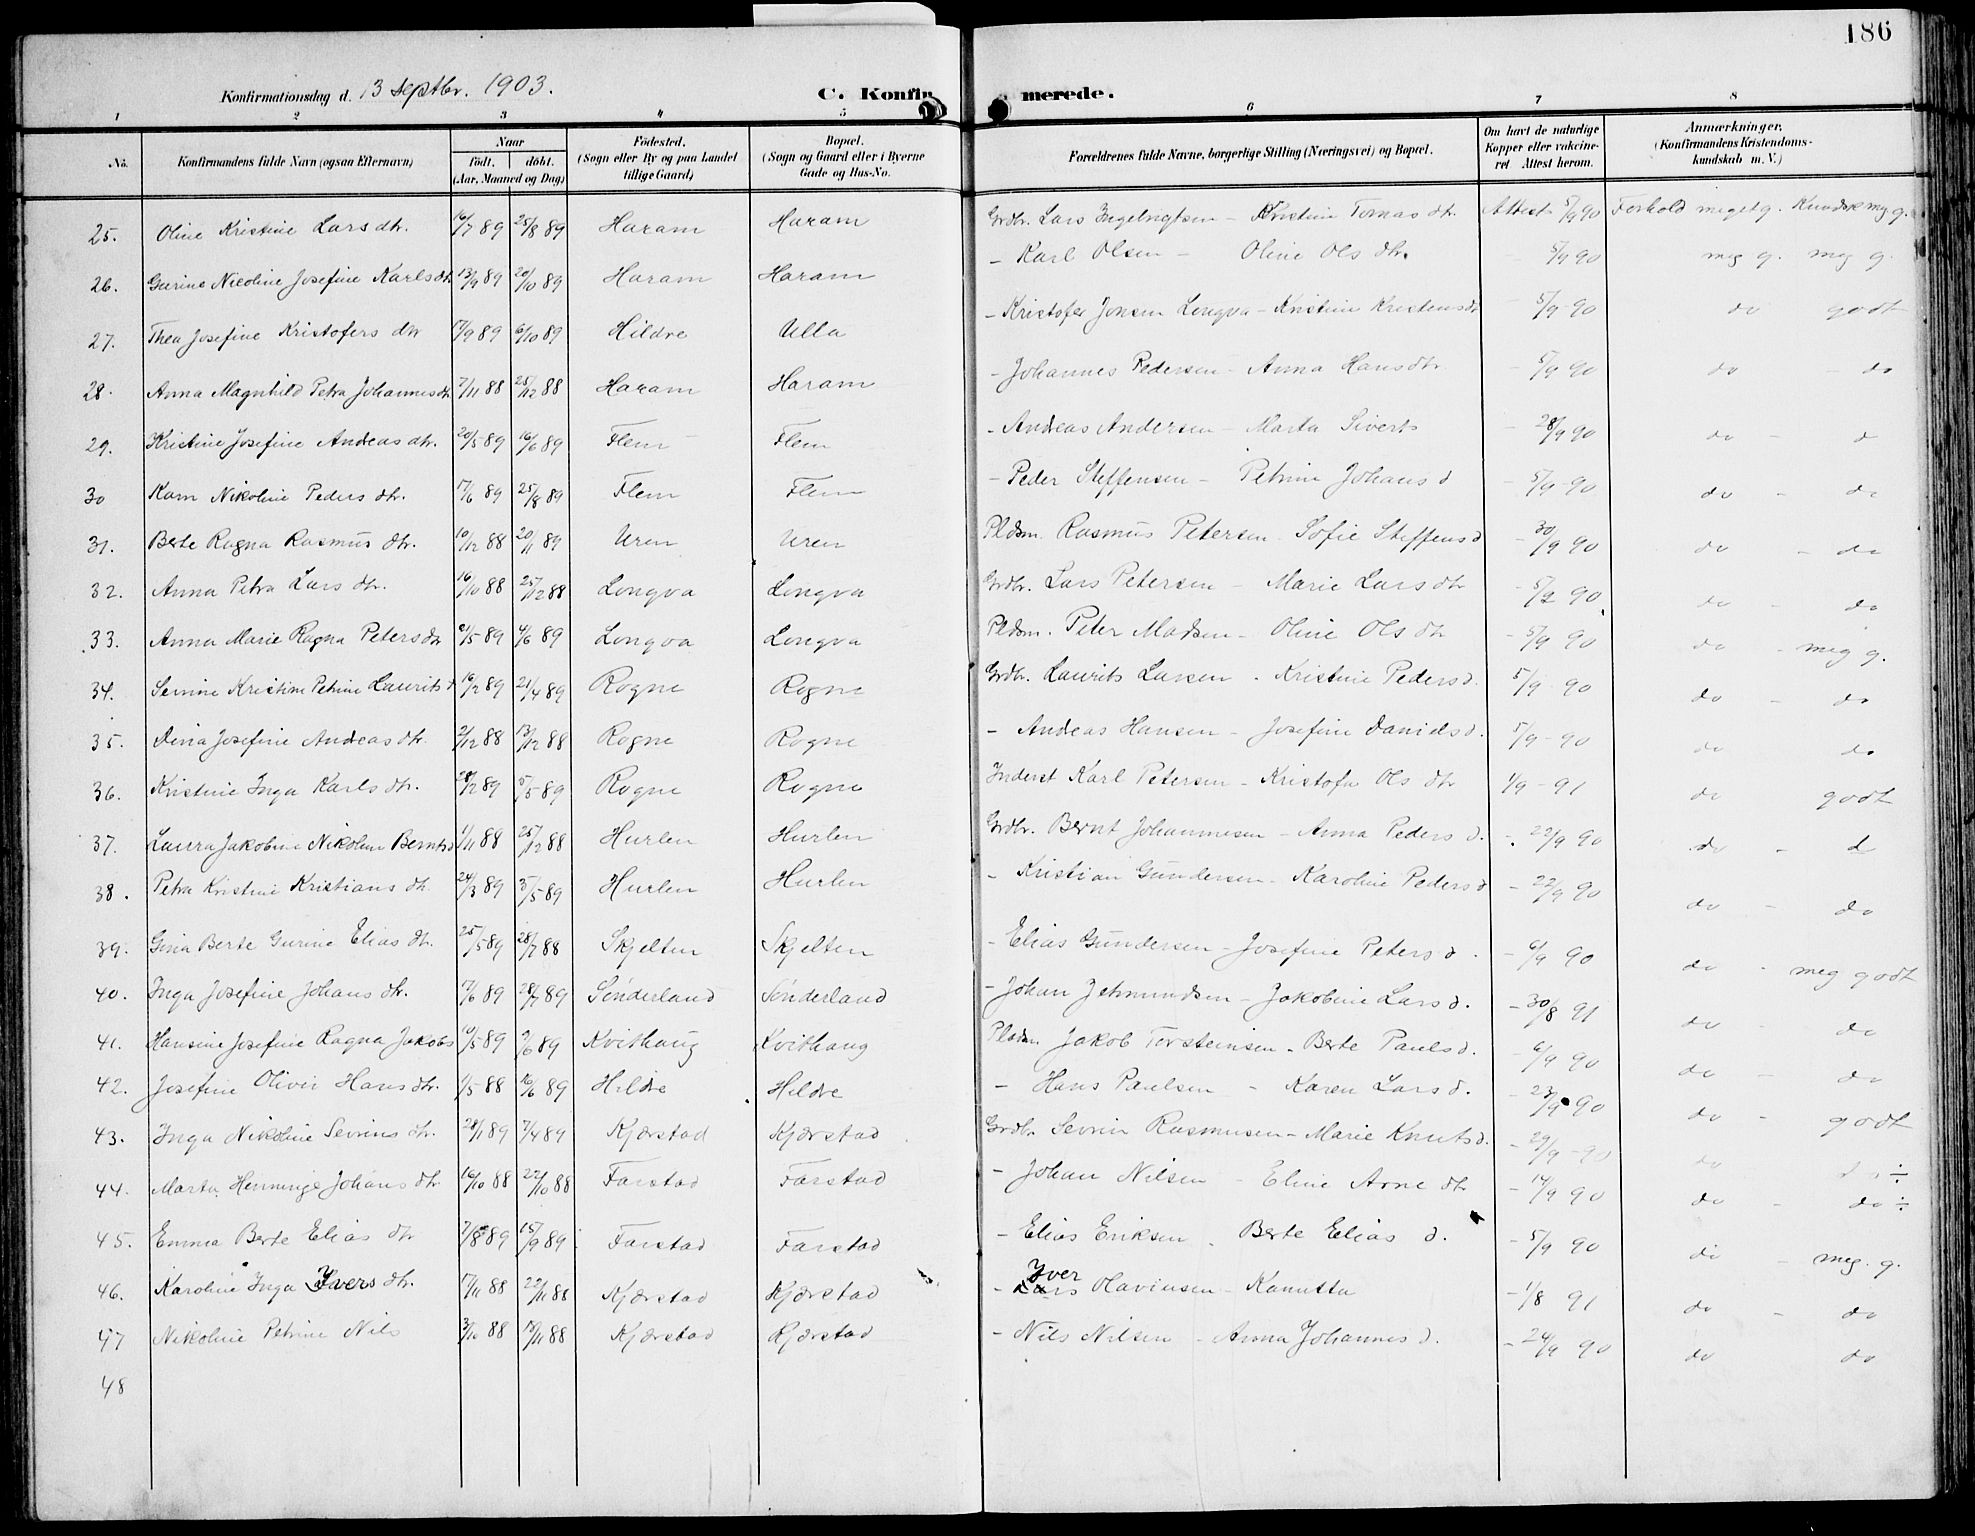 186
Konfirmationsdag d. 13 Septbr. 1903. C. Konfir merede.
1 2 3 4 5 6 7 8
No. Konfirmandens fulde Navn (ogsaa Efternavn) Naar födt. döbt. (Aar, Maaned og Dag) Födested. (Sogn eller By og paa Landet tillige Gaard) Bopæl. (Sogn og Gaard eller i Byerne Gade og Hus-No. Forældrenes fulde Navne, borgerlige Stilling (Næringsvei) og Bopæl. Om havt de naturlige Kopper eller vakcineret Attest herom. Anmærkninger. (Konfirmandens Kristendomskundskab m. V.)
25. Oline Kristine Lars dtr. 16/7 89 25/8 89 Haram Haram Grdbr. Lars Ingebrigtsen - Kristine Tomas dtr. Attest 5/9 90 Forhold meget g. Kundsk meg g.
26. Gurine Nicoline Josefine Karls dtr 13/9 89 20/10 89 Haram Haram - Karl Olsen - Oline Ols dtr. 5/9 90 meg g. meg g.
27. Thea Josefine Kristofers dtr 17/9 89 6/10 89 Hildre Ulla - Kristofer Jonsen Longva - Kristine Kristensdr 5/9 - 90 do godt
28. Anna Magnhild Petra Johannesdtr 7/11 88 25/12 88 Haram Haram - Johannes Pedersen - Anna Hansdtr - 5/9 90 do - do
29. Kristine Josefine Andeas dtr. 20/5 89 16/6 89 Flem Flem - Andeas Andersen - Marta Siverts - 28/9 90 do - d
30 Karn Nikoline Peders dtr. 17/6 89 25/8 89 Flem Flem - Peder Steffensen - Petrine Johans d - 5/9 - 90 do - do
31. Berte Ragna Rasmus dtr. 10/12 88 20/1 89 Uren Uren Pldsm. Rasmus Petersen - Sofie Steffens d - 30/9 90 do - do
32. Anna Petra Lars dtr. 16/10 88 25/12 88 Longva Longva Grdbr. Lars Petersen - Marie Lars dtr - 5/2 90 do - do
33. Anna Marie Ragna Peters dtr 21/5 89 4/6 89 Longva Longva Pldsm. Peter Madsen - Oline Ols dtr - 5/9 90 do - meg g.
34. Sevrine Kristine Petrine Laurits d 16/2 89 21/4 89 Rogne Rogne Grdbr. Laurits Larsen - Kristine Peders d. 5/9 - 90 do - do
35. Dina Josefine Andeas dtr. 2/12 88 13/12 88 Rogne Rogne - Andeas Hansen - Josefine Daniels d. 5/9 - 90 do do
36. Kristine Inga Karls dtr. 28/2 89 5/5 89 Rogne Rogne Inderst Karl Petersen - Kristofa Ols dtr 1/9 - 91 do godt
37. Laura Jakobine Nikoline Bernts d 1/11 88 25/12 88 Hurlen Hurlen Grdbr. Bernt Johannesen - Anna Peders d. - 22/9 90 do - d
38. Petra Kristine Kristians dtr. 24/3 89 5/5 89 Hurlen Hurlen - Kristian Gundersen - Karoline Peders d - 22/9 90 do - do
39. Gina Berte Gurine Elias dtr. 25/5 89 28/7 88 Skjelten Skjelten - Elias Gundersen - Josefine Peters d. - 6/9 90 do - meg godt
40. Inga Josefine Johans dtr. 17/6 89 28/7 89 Sønderland Sønderland - Johan Jetmundsen - Jakobine Lars d. - 30/8 91 do - do
41. Hansine Josefine Ragna Jakobs 10/5 89 9/6 89 Kvithaug Kvithaug Pladsm. Jakob Torsteinsen - Berte Pauls d. - 6/9 90 do - do
42. Josefine Olivie Hans dtr. 1/5 88 16/6 89 Hildre Hildre - Hans Paulsen - Karen Lars d. - 23/9 90 do - godt
43. Inga Nikoline Sevrins dtr. 28/1 89 7/4 89 Kjærstad Kjærstad Grdbr. Sevrin Rasmusen - Marie Knuts d. - 29/9 - 90 do do ÷
44. Marta Henninge Johans dtr 16/10 88 22/10 88 Farstad Farstad - Johan Nilsen - Eline Arne dtr - 14/9 90 do - do ÷
45. Emma Berte Elias dtr 7/8 89 15/9 89 Farstad Farstad - Elias Eriksen - Berte Elias d. - 5/9 90 do - meg. g.
46. Karoline Inga Ivers dtr. 17/11 88 22/11 88 Kjærstad Kjærstad - Iver Olavinsen - Kanutta - 1/8 91 do - do
47 Nikoline Petrine Nils 3/10 88 18/11 88 Kjærstad Kjærstad - Nils Nilsen - Anna Johannes d. - 24/9 90 do do
48